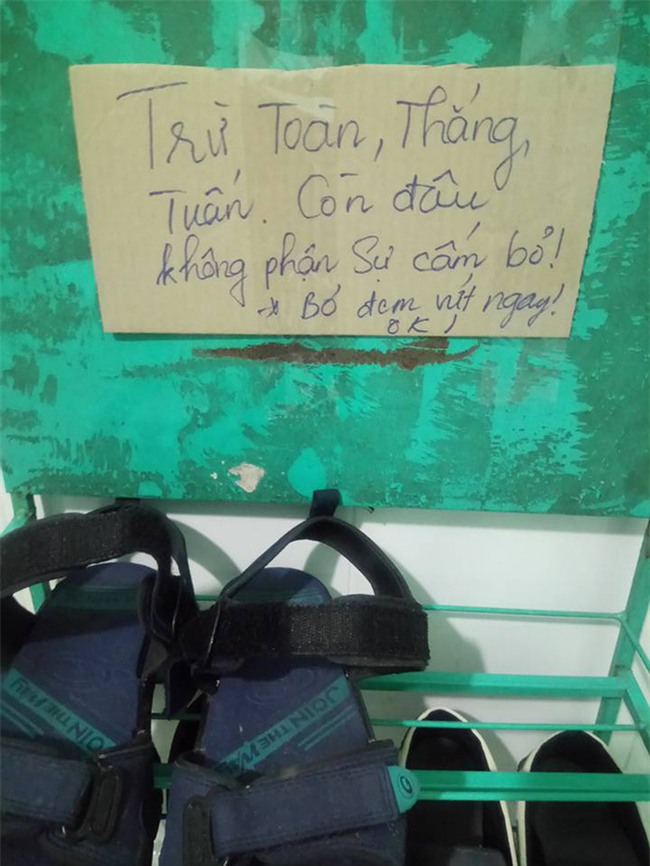 Trừ Toàn, Thắng,
Tuấn. Còn đâu
không phận Sự cấm bỏ!
* Bỏ đem vứt ngay!
OK!
JOIN THE WAY
JOIN THE WAY